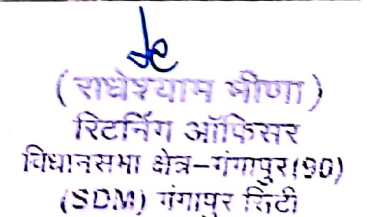 (राधेश्याम मीणा)
रिटर्निंग ऑफिसर
विधानसभा क्षेत्र-गंगापुर(90)
(SDM) गंगापुर सिटी